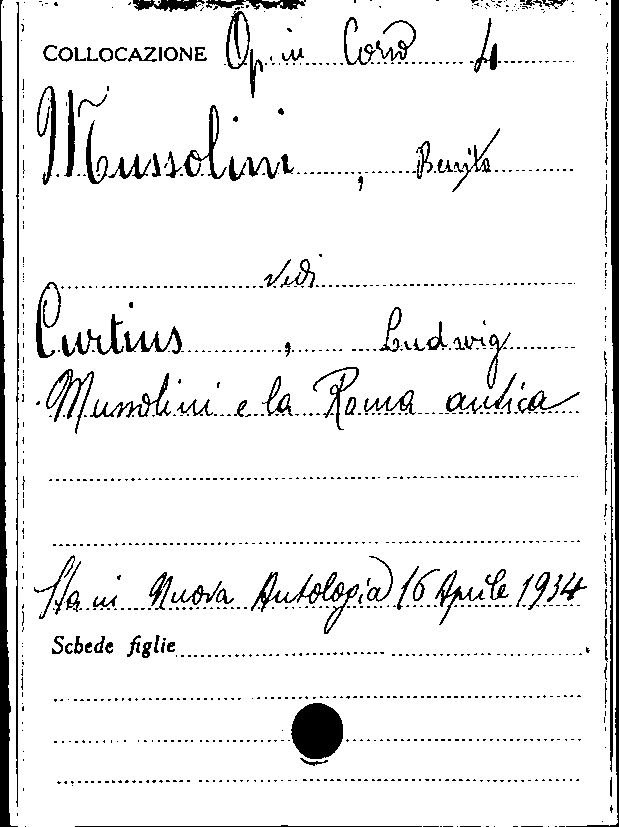 COLLOCAZIONE Op. in Corso 4
Mussolini , Benito
vedi
Curtius , Ludwig
Mussolini e la Roma antica
Sta in Nuova Antologia) 16 Aprile 1934
Schede figlie